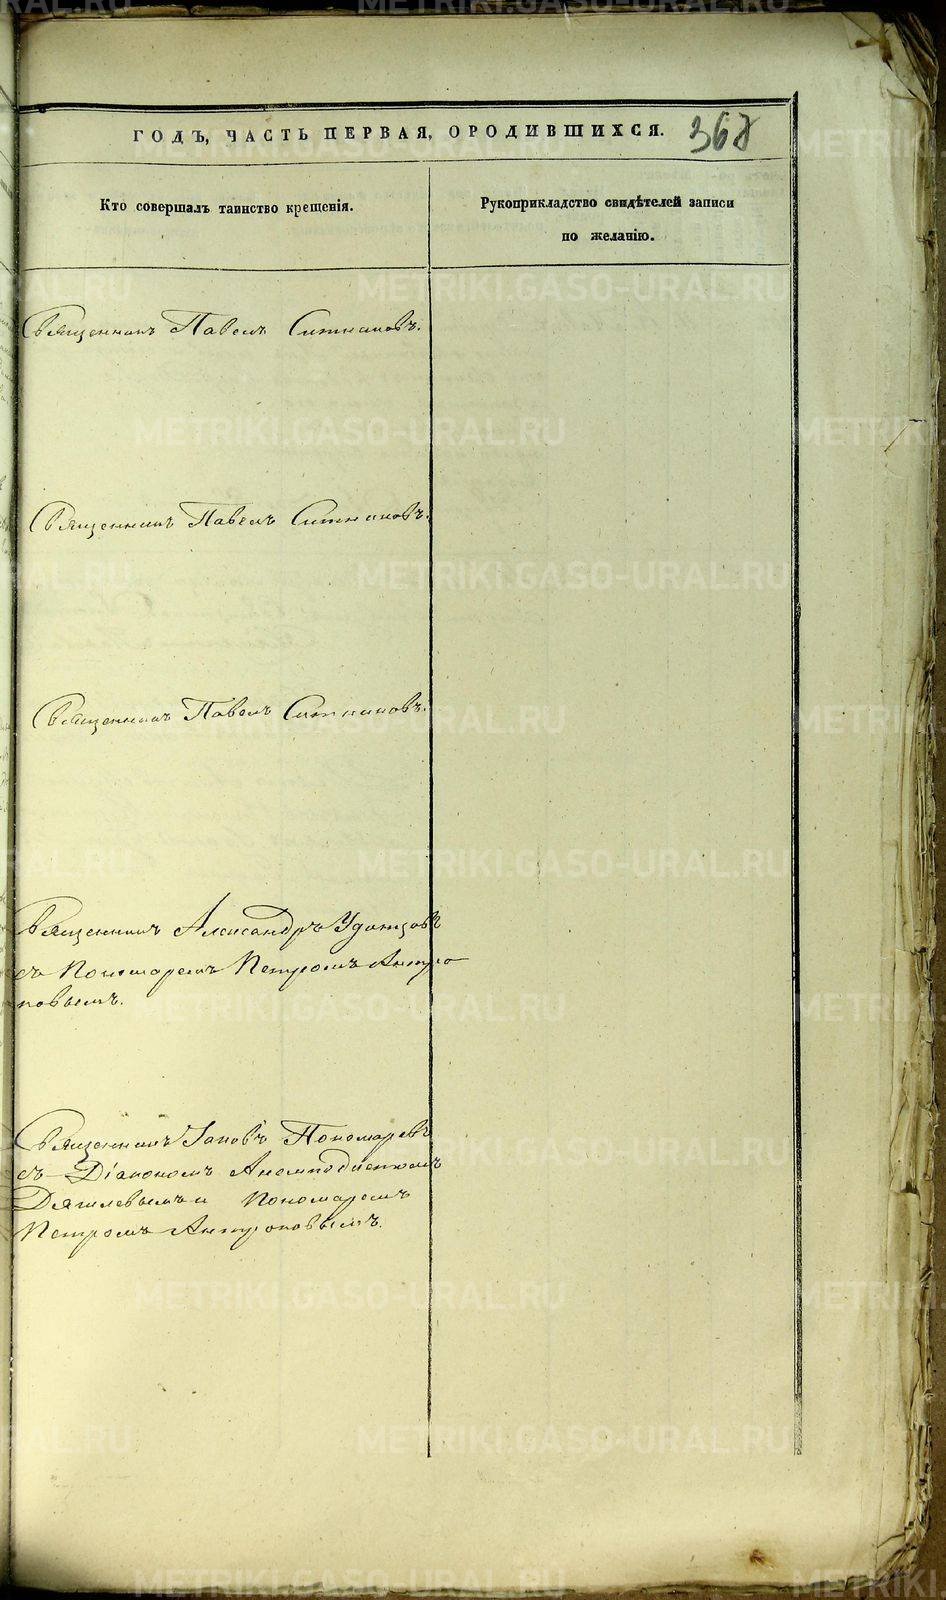 ГОДЪ, ЧАСТЬ ПЕРВАЯ, О РОДИВШИХСЯ. 368
Кто совершалъ таинство крещенія.
Рукоприкладство свидѣтелей записи
по желанію.
Священникъ Павелъ Ситниковъ.
Священникъ Павелъ Ситниковъ.
Священникъ Павелъ Ситниковъ.
Священникъ Александръ Удинцовъ
съ Пономаремъ Петромъ Антро-
повымъ.
Священникъ Іаковъ Пономаревъ
съ Діакономъ Анемподистомъ
Дягилевымъ и Пономаремъ
Петромъ Антроповымъ.
METRIKI.GASO-URAL.RU